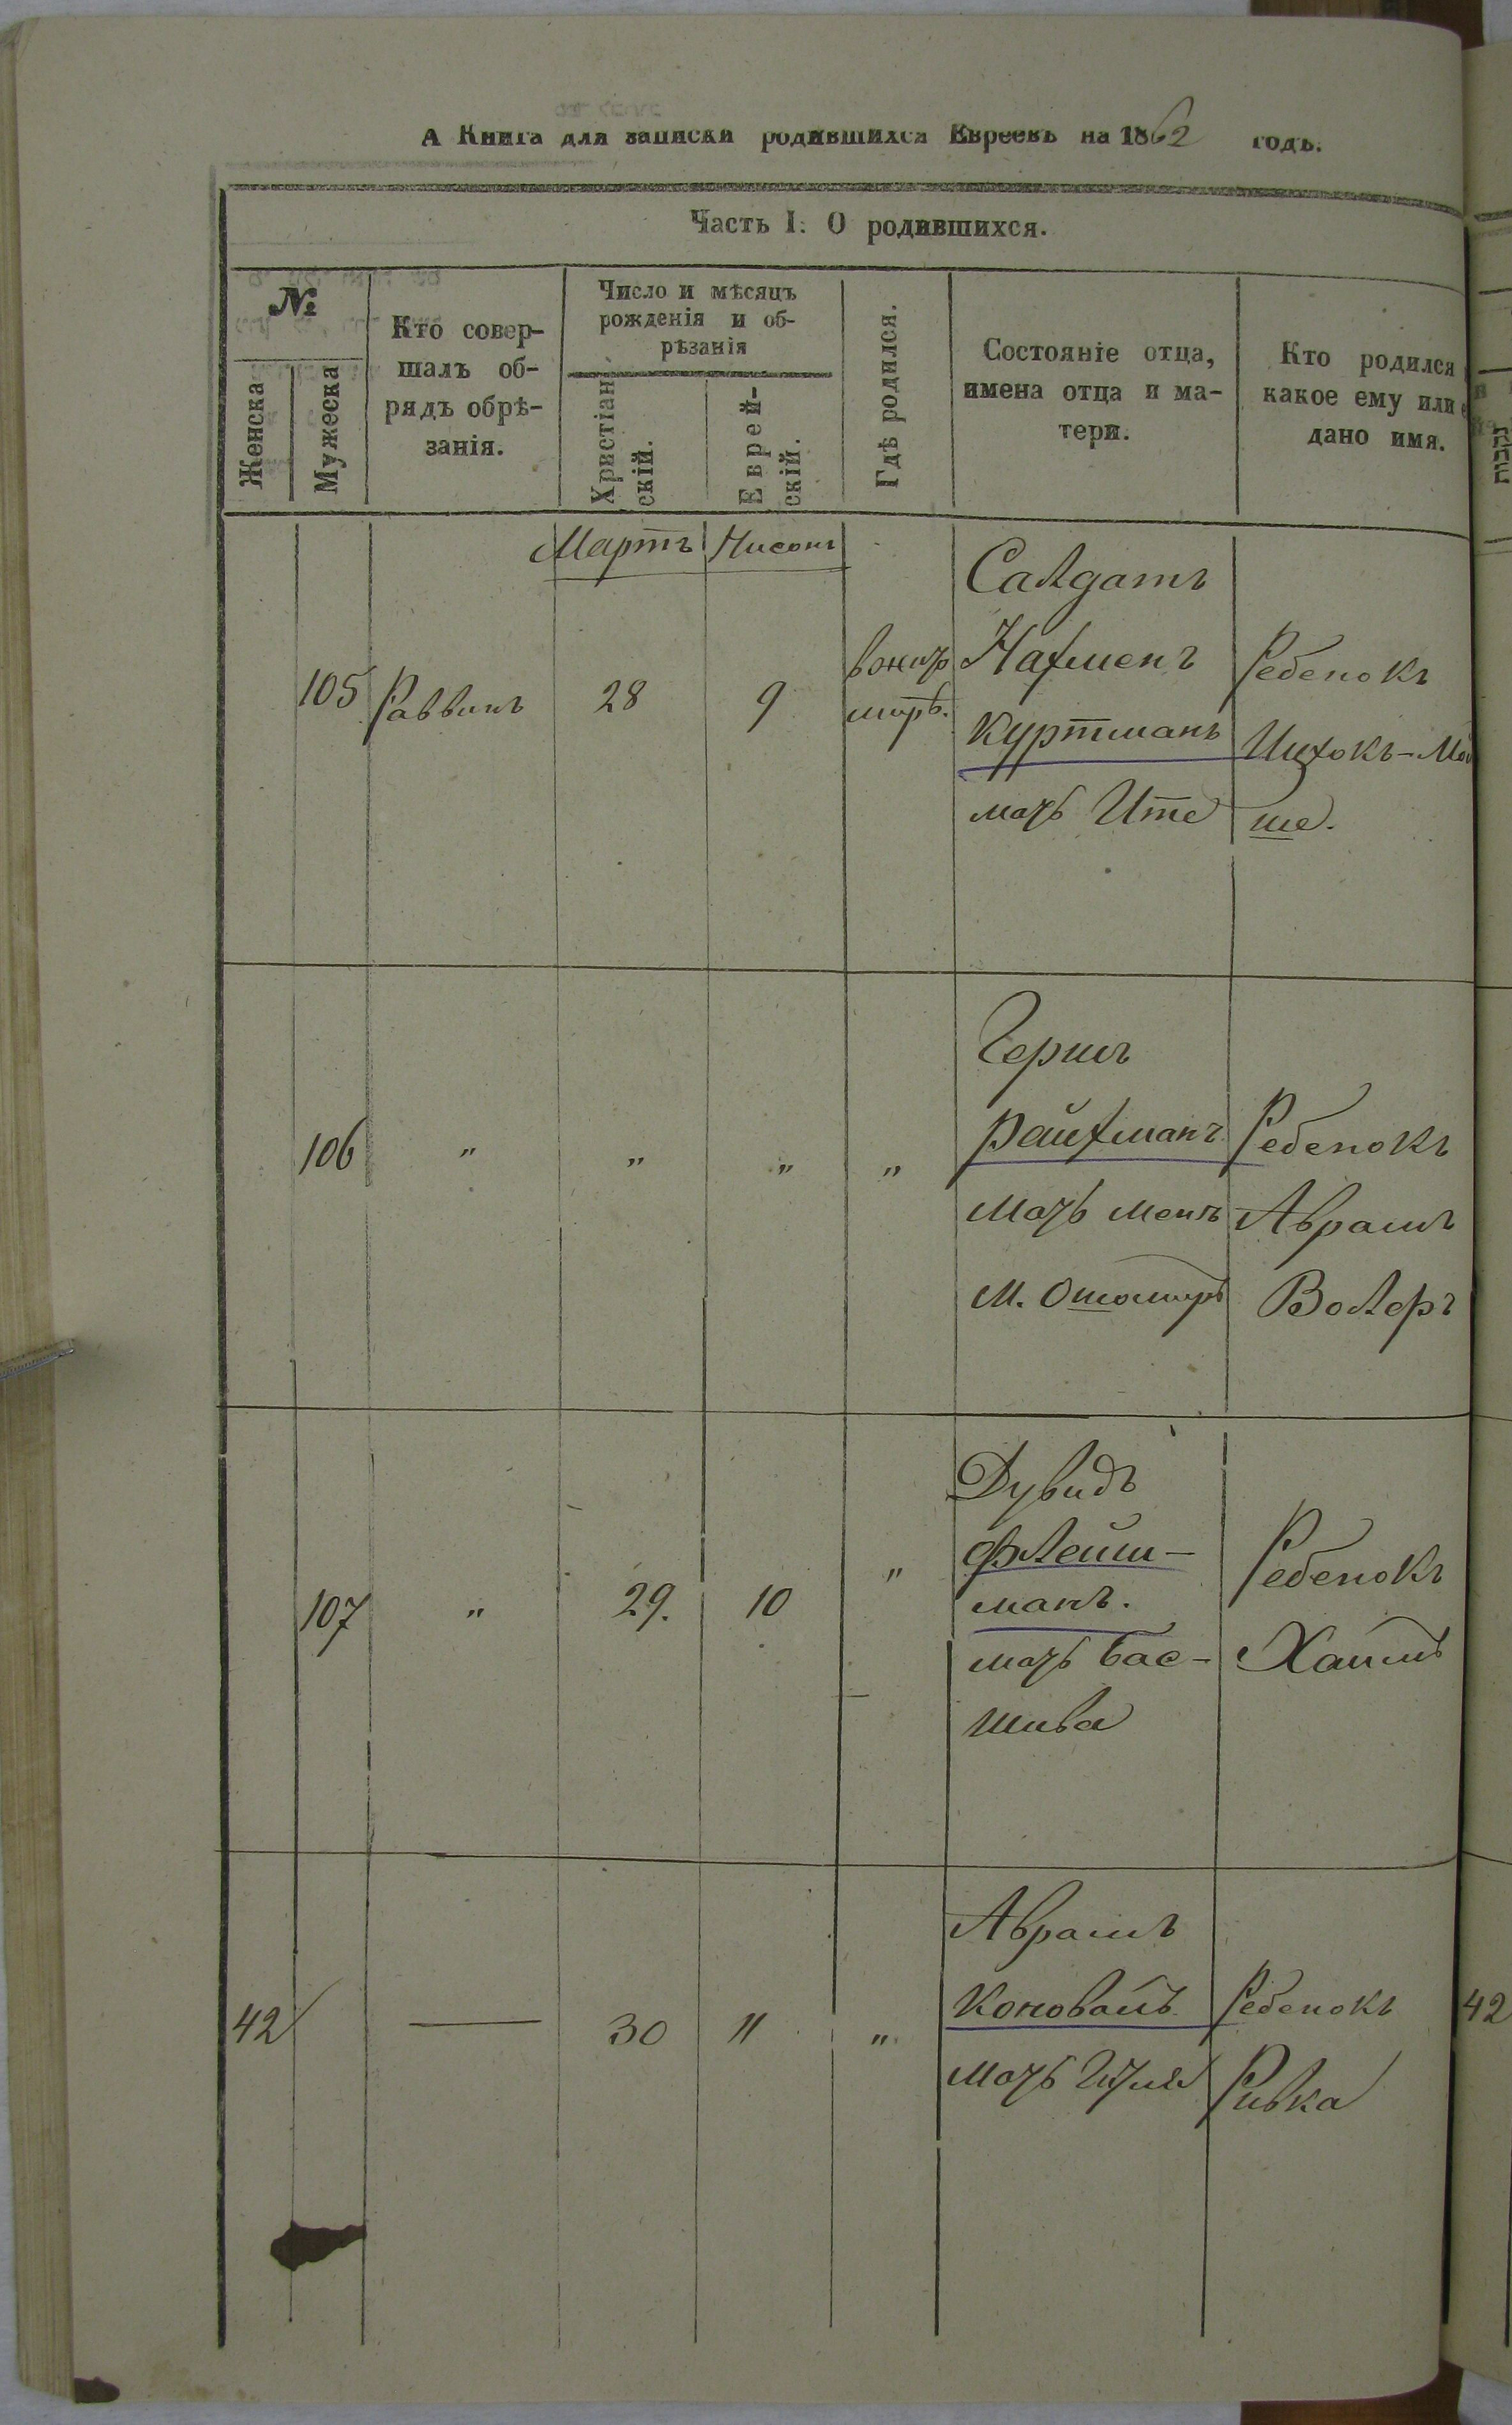 А Книга для записки родившихся Евреевъ на 1862 годъ.
Часть I. О родившихся.
№
Женска
Мужеска
Кто совер-
шалъ об-
рядъ обрѣ-
занія.
Число и мѣсяцъ
рожденія и об-
рѣзанія
Христіан
скій.
Еврей-
скій.
Гдѣ родился.
Состояніе отца,
имена отца и ма-
тери.
Кто родился
какое ему или
дано имя.
Мартъ Нисонъ
105 Раввинъ 28 9
вжито
мирѣ.
Салдатъ
Нахменъ
Куртманъ
мать Ите
Ребенокъ
Ицхокъ-Мой
ше.
106 „ „ „ „
Гершъ
Райхманъ
мать Меня
М.
Ребенокъ
Аврамъ
Волеръ
107 „ 29. 10 „
Дувидъ
Флейш-
манъ.
мать Бас-
шива
Ребенокъ
Хаимъ
42 — 30 11 „
Аврамъ
Коновалъ
мать
Ребенокъ
Ривка
42